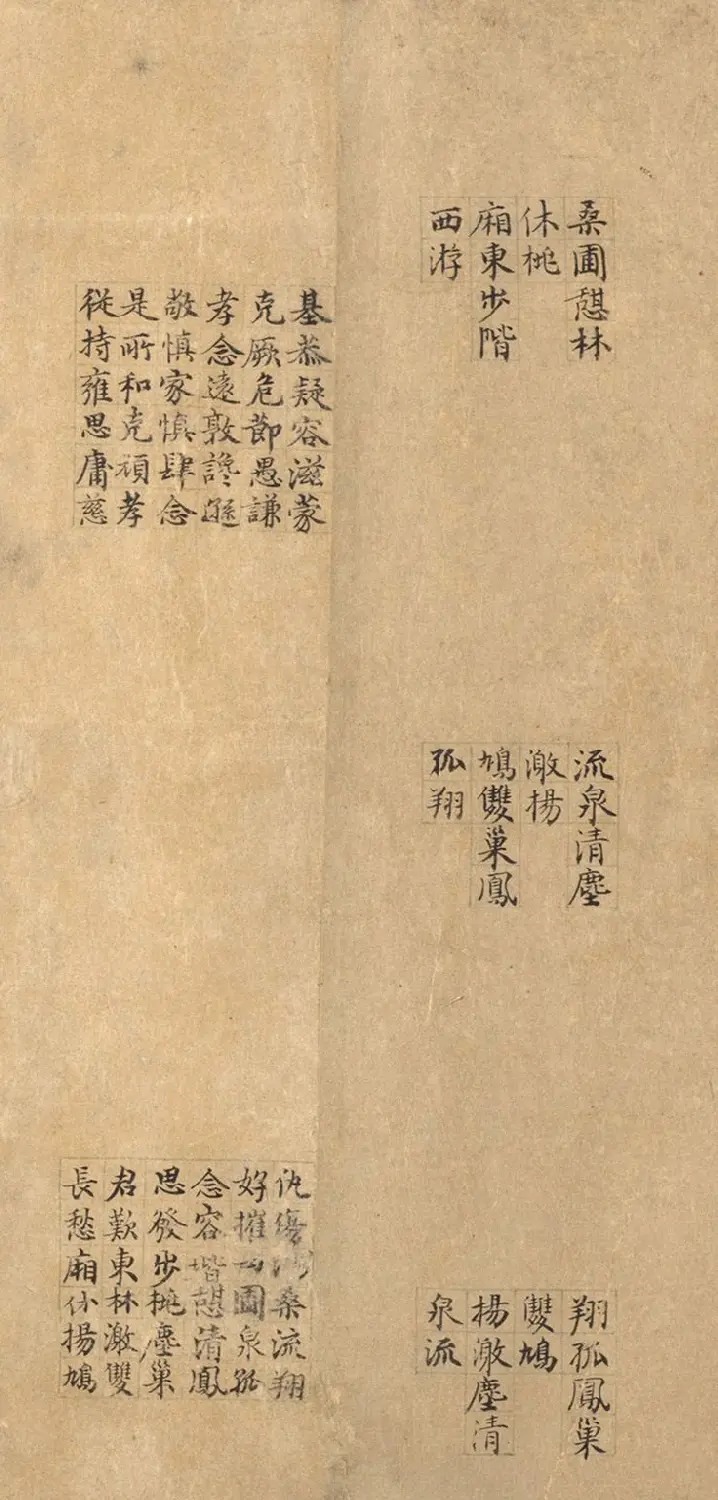 桑圃憩林
休桃
廂東步階
西游
流泉清塵
激揚
鳩雙巢鳳
孤翔
翔孤鳳巢
雙鳩
揚激塵清
泉流
基恭疑容滋蒙
克厥危節愚謙
孝念遠敦讒遜
敬慎家慎肆念
是所和克頑孝
從持雍思庸慈
仇傷桑流翔
好摧西圃泉孤
念容階憩清鳳
思發步桃塵巢
君歎東林激雙
長愁廂休揚鳩